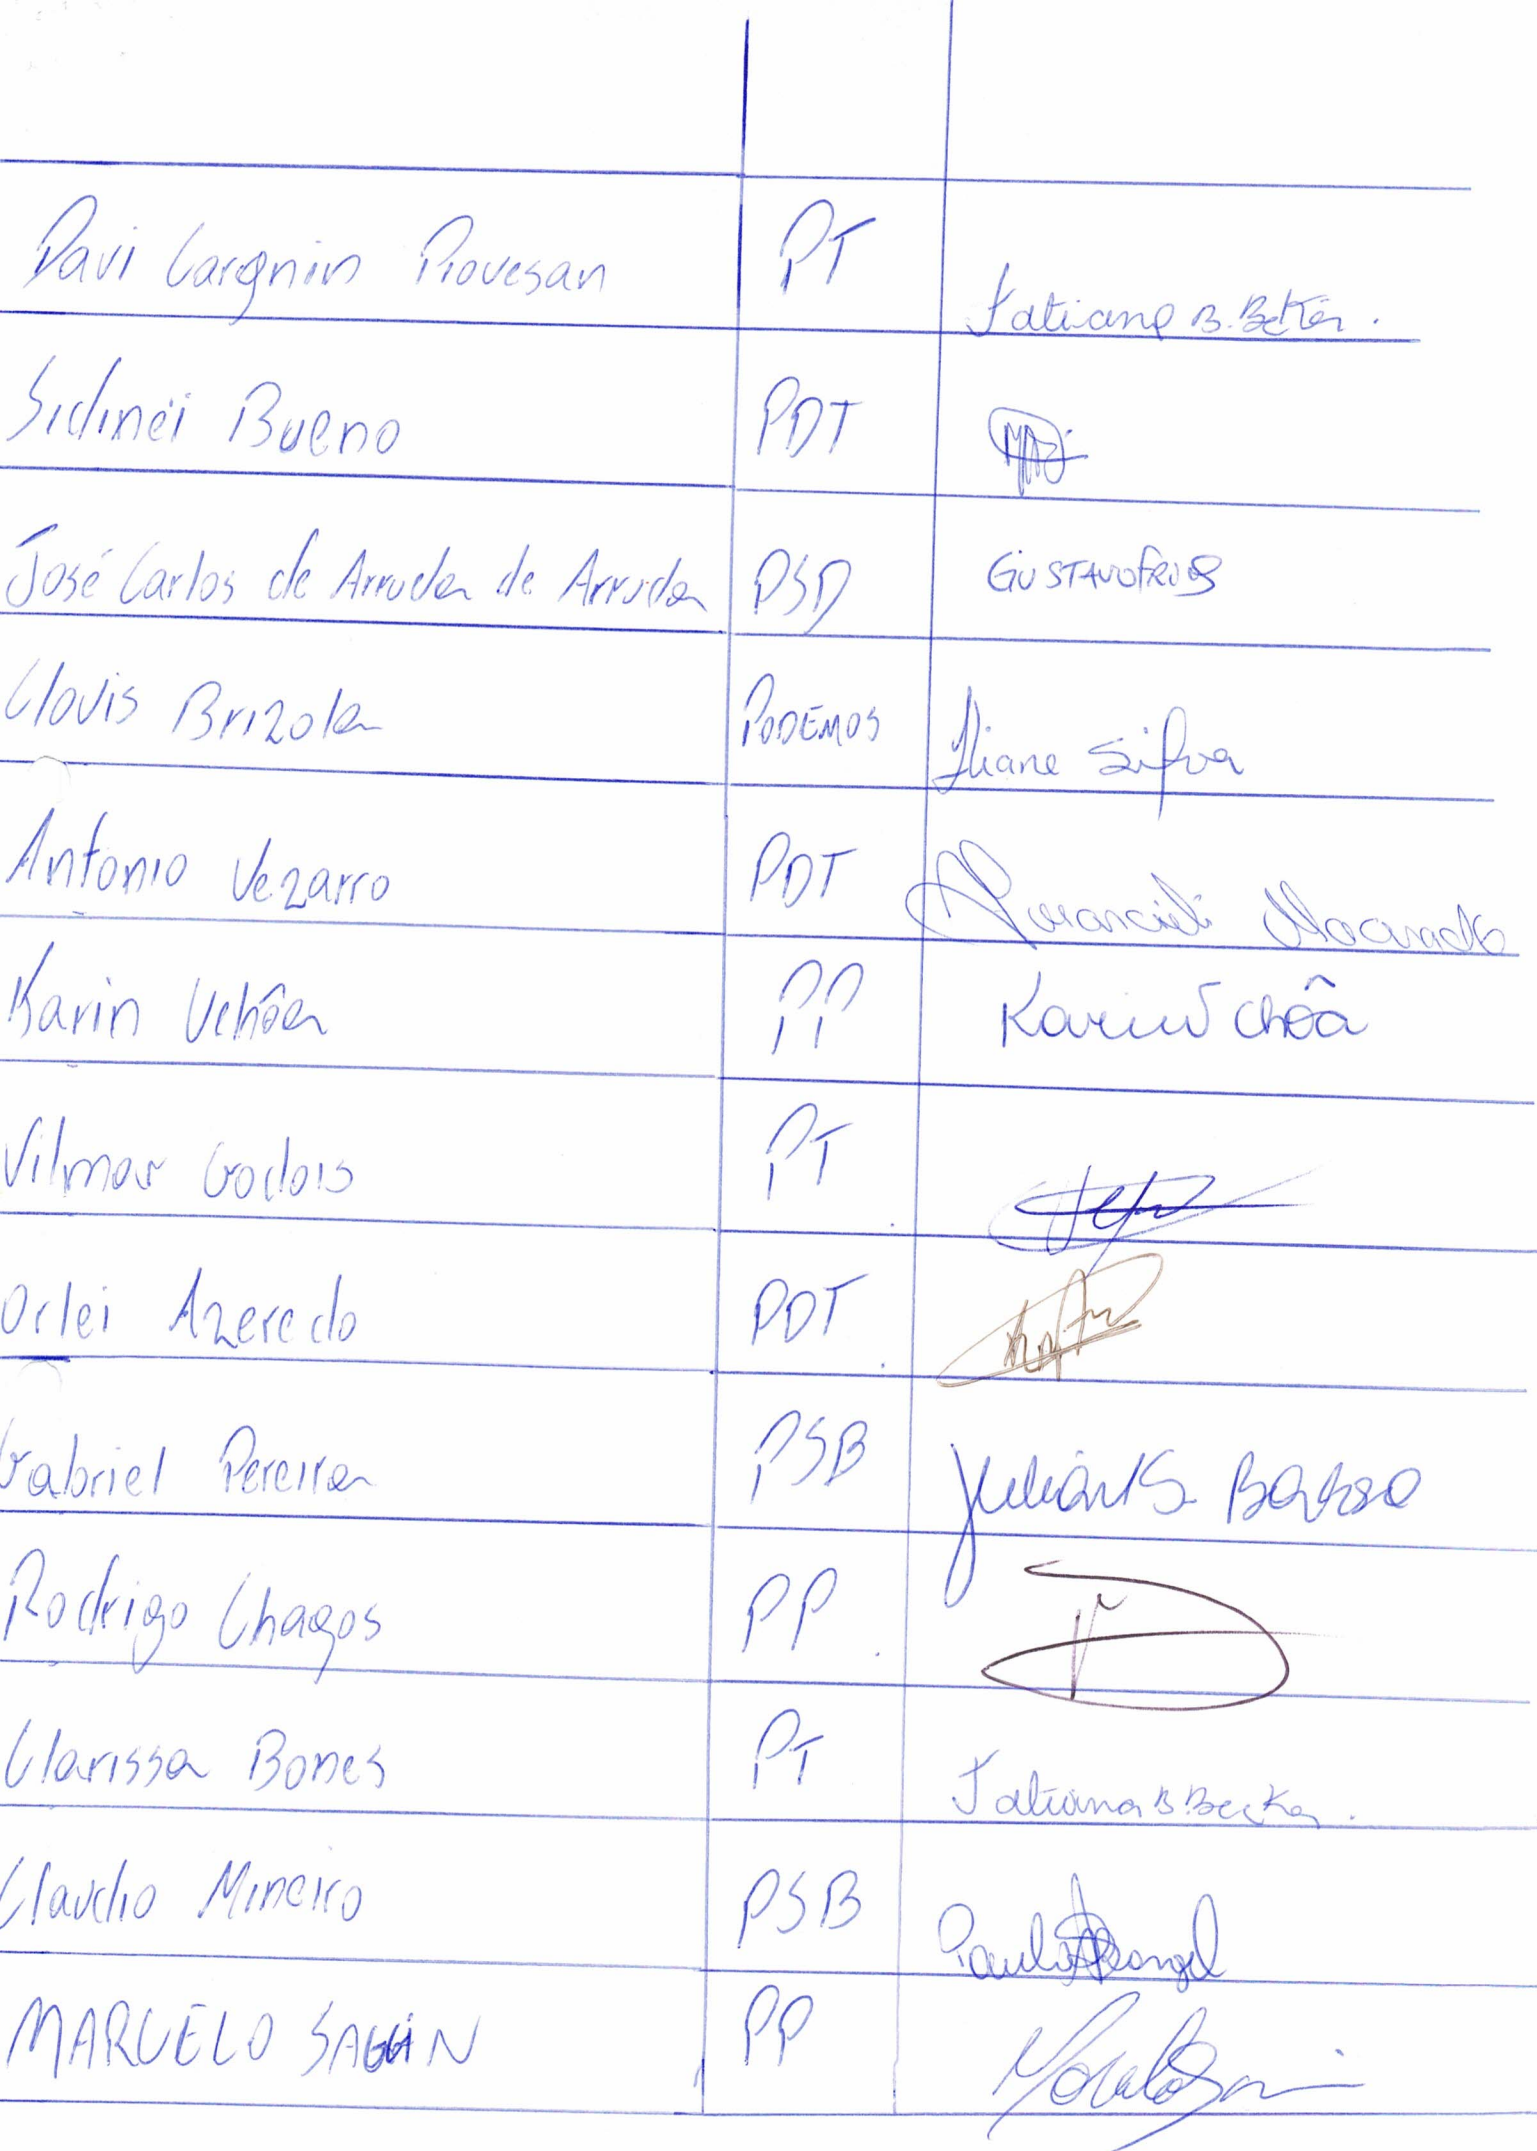 Davi Cargnin Piovesan PT Tatiane B. Becker.
Sidinei Bueno PDT
José Carlos de Arruda de Arruda PSD GUSTAVO FROIS
Clovis Brizola PODEMOS Iliane Silva
Antonio Vezarro PDT
Karin Uchôa PP Karin Uchôa
Vilmar Godois PT
Orlei Azeredo PDT
Gabriel Pereira PSB
Rodrigo Chagas PP
Clarissa Bones PT Tatiana B. Becker.
Claudio Mineiro PSB
MARCELO SAGGIN PP